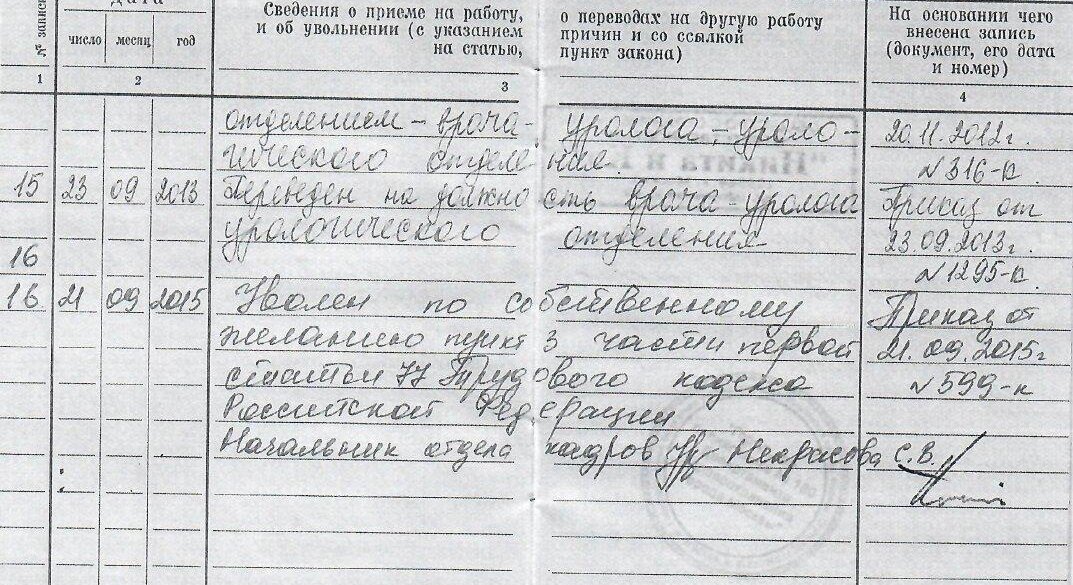 № запис
Дата
число месяц год
Сведения о приеме на работу, о переводах на другую работу
и об увольнении (с указанием причин и со ссылкой
на статью, пункт закона)
На основании чего
внесена запись
(документ, его дата
и номер)
1 2 3 4
отделением – врача- уролога, – уроло- 20.11.2012г.
гического отделения. №316-к.
15 23 09 2013 Переведен на должность врача-уролога Приказ от
урологического отделения 23.09.2013г.
16 №1295-к.
16 21 09 2015 Уволен по собственному Приказ от
желанию пункт 3 части первой 21.09.2015г
статьи 77 Трудового кодекса №599-к
Российской Федерации
Начальник отдела кадров Некрасова С.В.